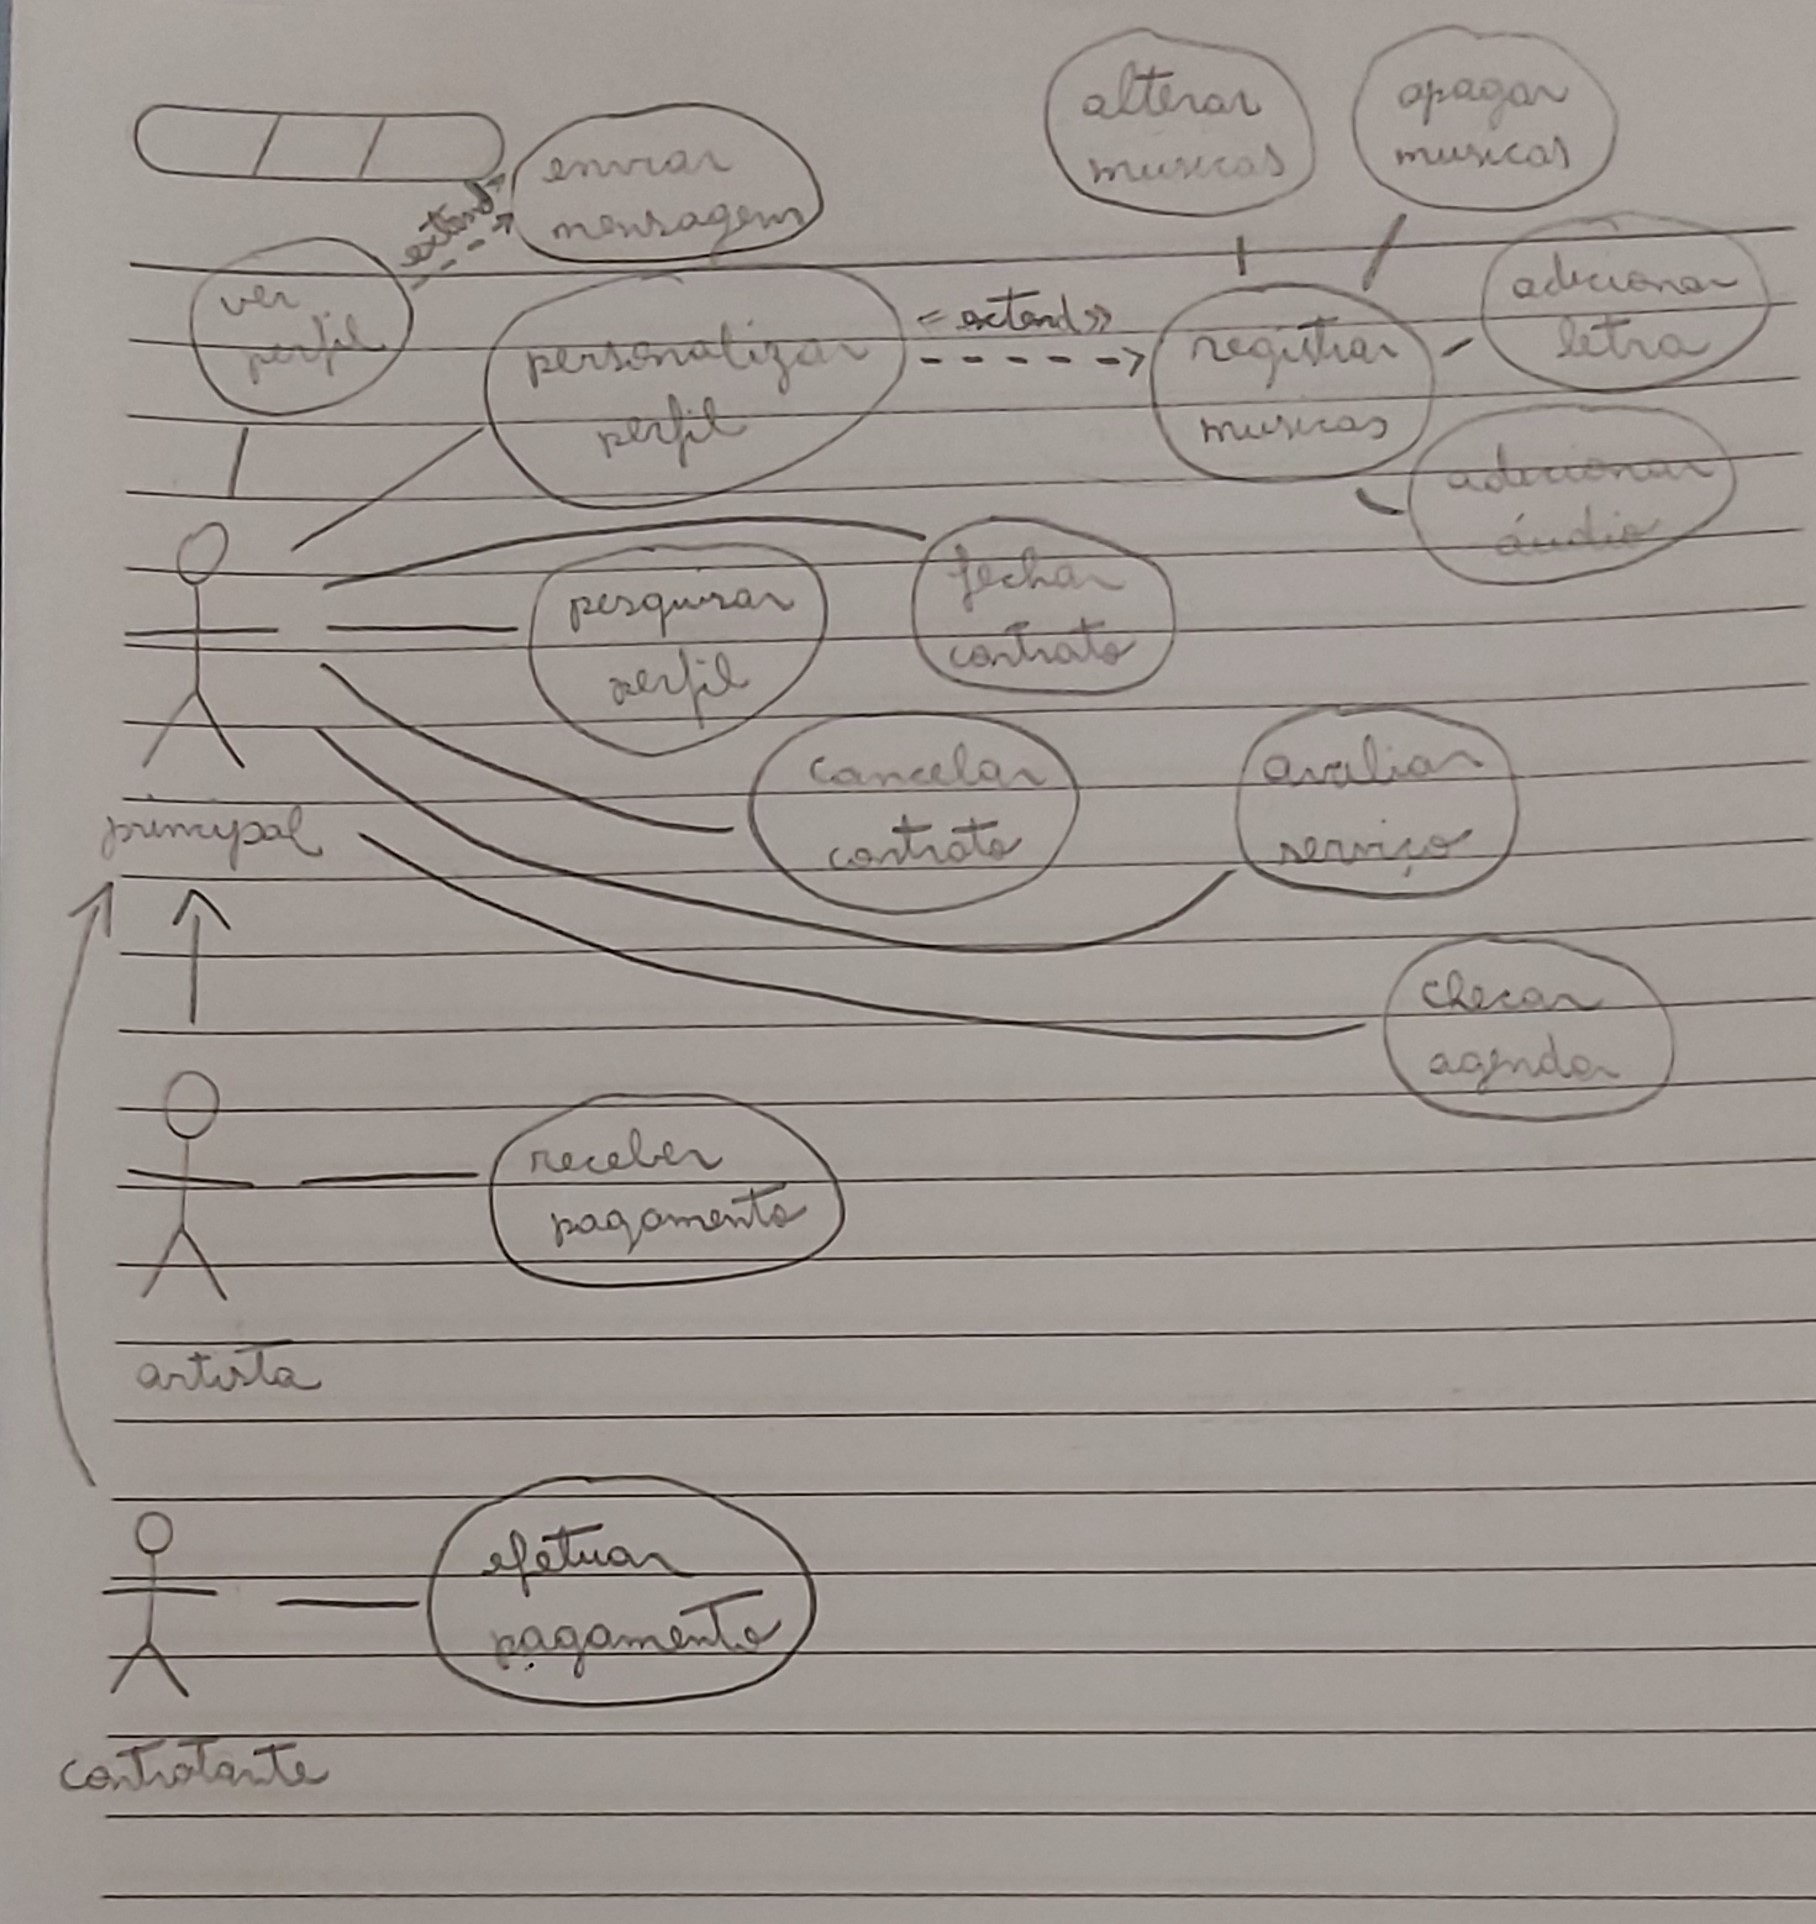 alterar
musicas
apagar
musicas
enviar
mensagem
extend
ver
perfil
personalizar
perfil
<extend>>
registrar
musicas
adicionar
letra
adicionar
áudio
pesquisar
perfil
fechar
contrato
cancelar
contrato
avaliar
serviço
principal
checar
agenda
receber
pagamento
artista
efetuar
pagamento
contratante